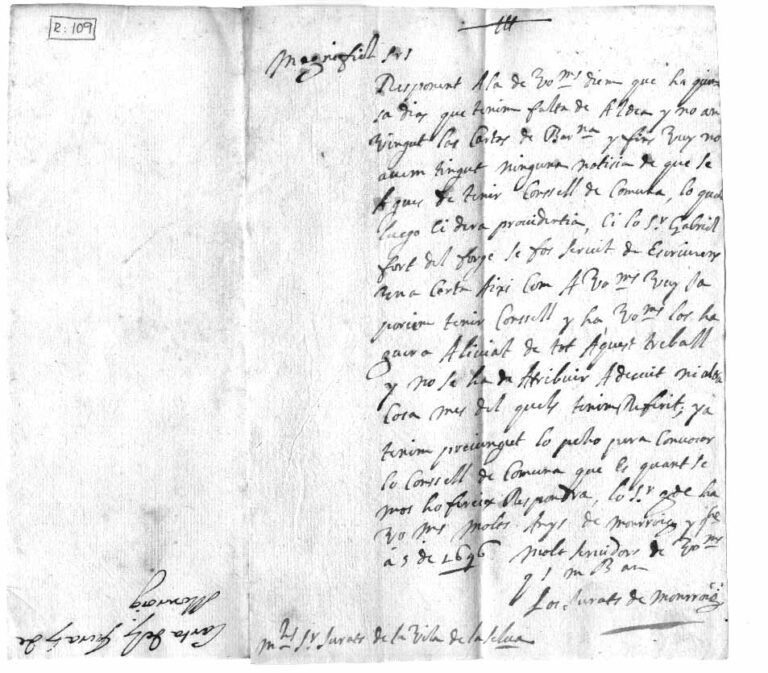 R: 109
Magnifichs Srs
Responent A la de Vo ms diem que ha quin
sa dias que tenim falta de Aldea y no an
vingut las Cartas de Barna y fins Vuy no
avem tingut ninguna notisia de que se
Agues de tenir Conssell de Comuna, lo qual
luego si dera providentia, Ci lo Sr Gabriel
fort del forge se fos servit de Escriurens
una Carta Aixi Com A Vo ms Vuy ja
poriem tenir Conssell y ha Vo ms los ha
guera Aliviat de tot Aquest treball
y no se ha de Atribuir A decuit ni altra
Cosa mes del quels tenim Referit; ya
tenim previngut lo peho pera Convocar
lo Conssell de Comuna que Es quant se
mos ofireix Respondra, lo Sr gde ha
Vo ms molts Anys de monrroig y
a 5 de 1696 molt servidors de Vo ms
q s m B an
Los Jurats de monrroig
ms Sr Jurats de la Vila de la Selva
Carta dels Jurats de
Monroig